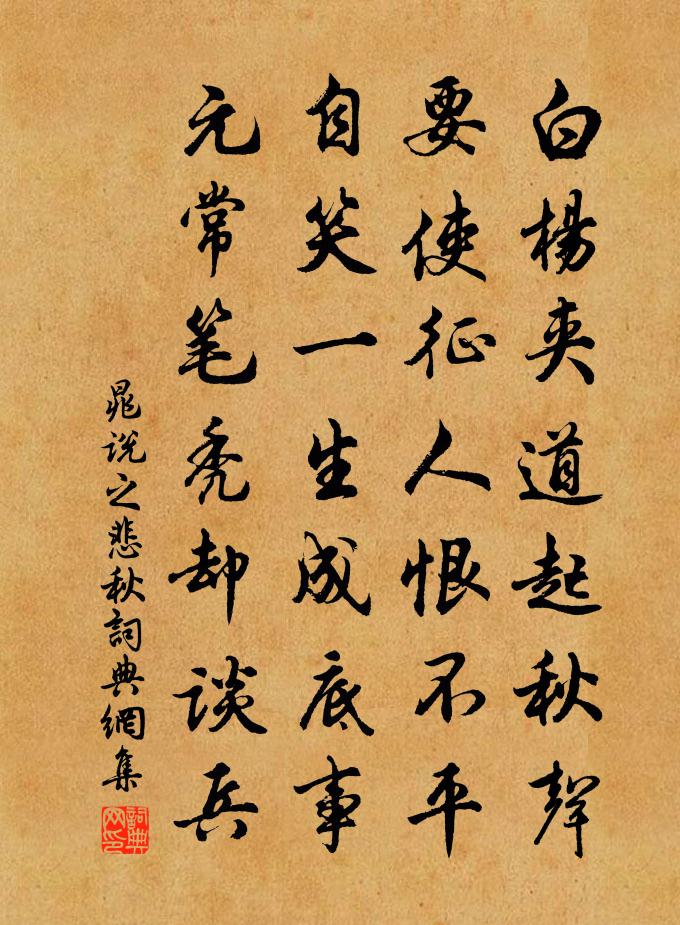 白楊夹道起秋聲
要使征人恨不平
自笑一生成底事
元常笔秃却谈兵
晁说之悲秋詞典網集
詞典网印